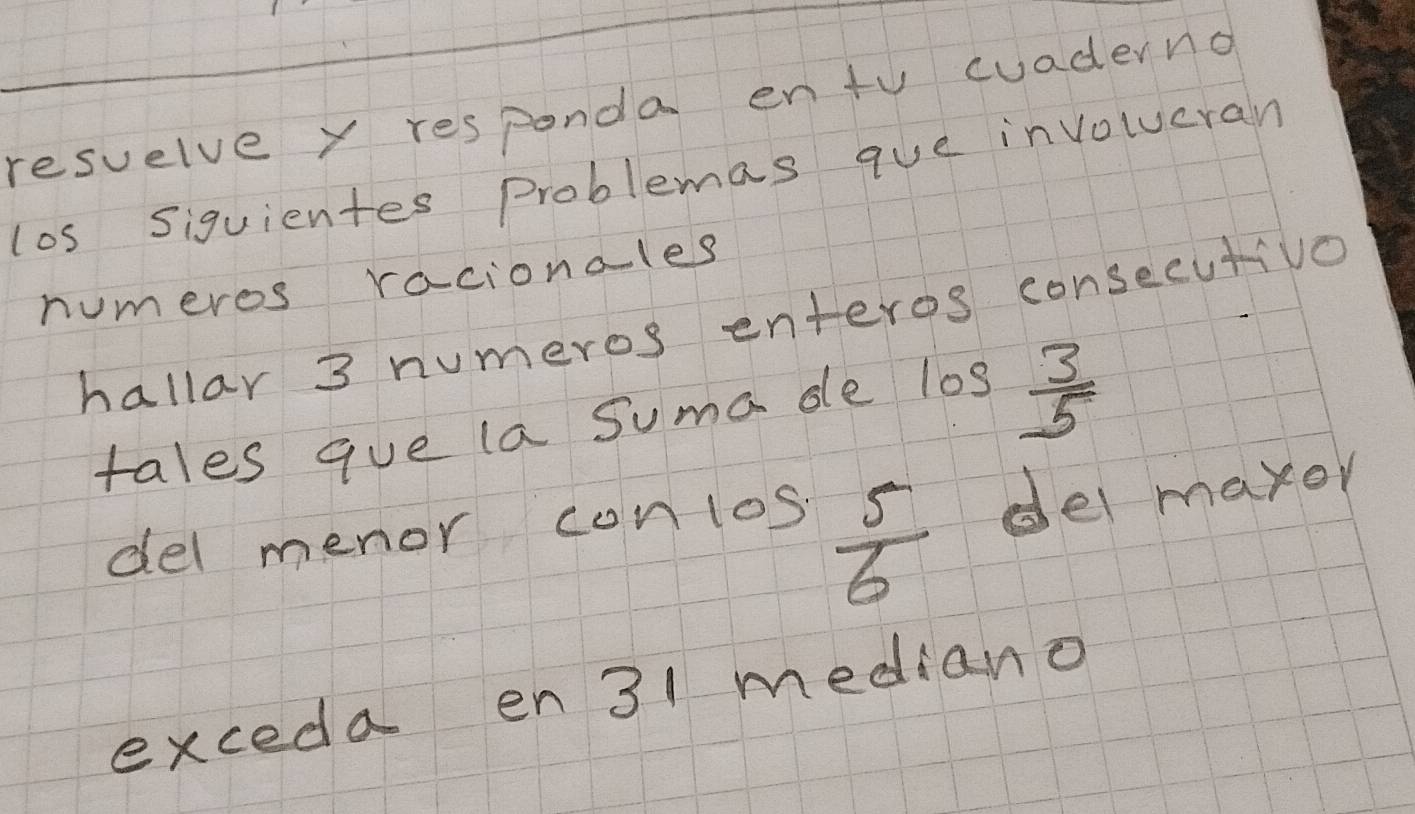 resuelve y responda en tu cuaderno
los siguientes problemas que involucran
numeros racionales
hallar 3 numeros enteros consecutivo
tales que la suma de los 3/5
del menor con los 5/6 del mayor
exceda en 31 mediano